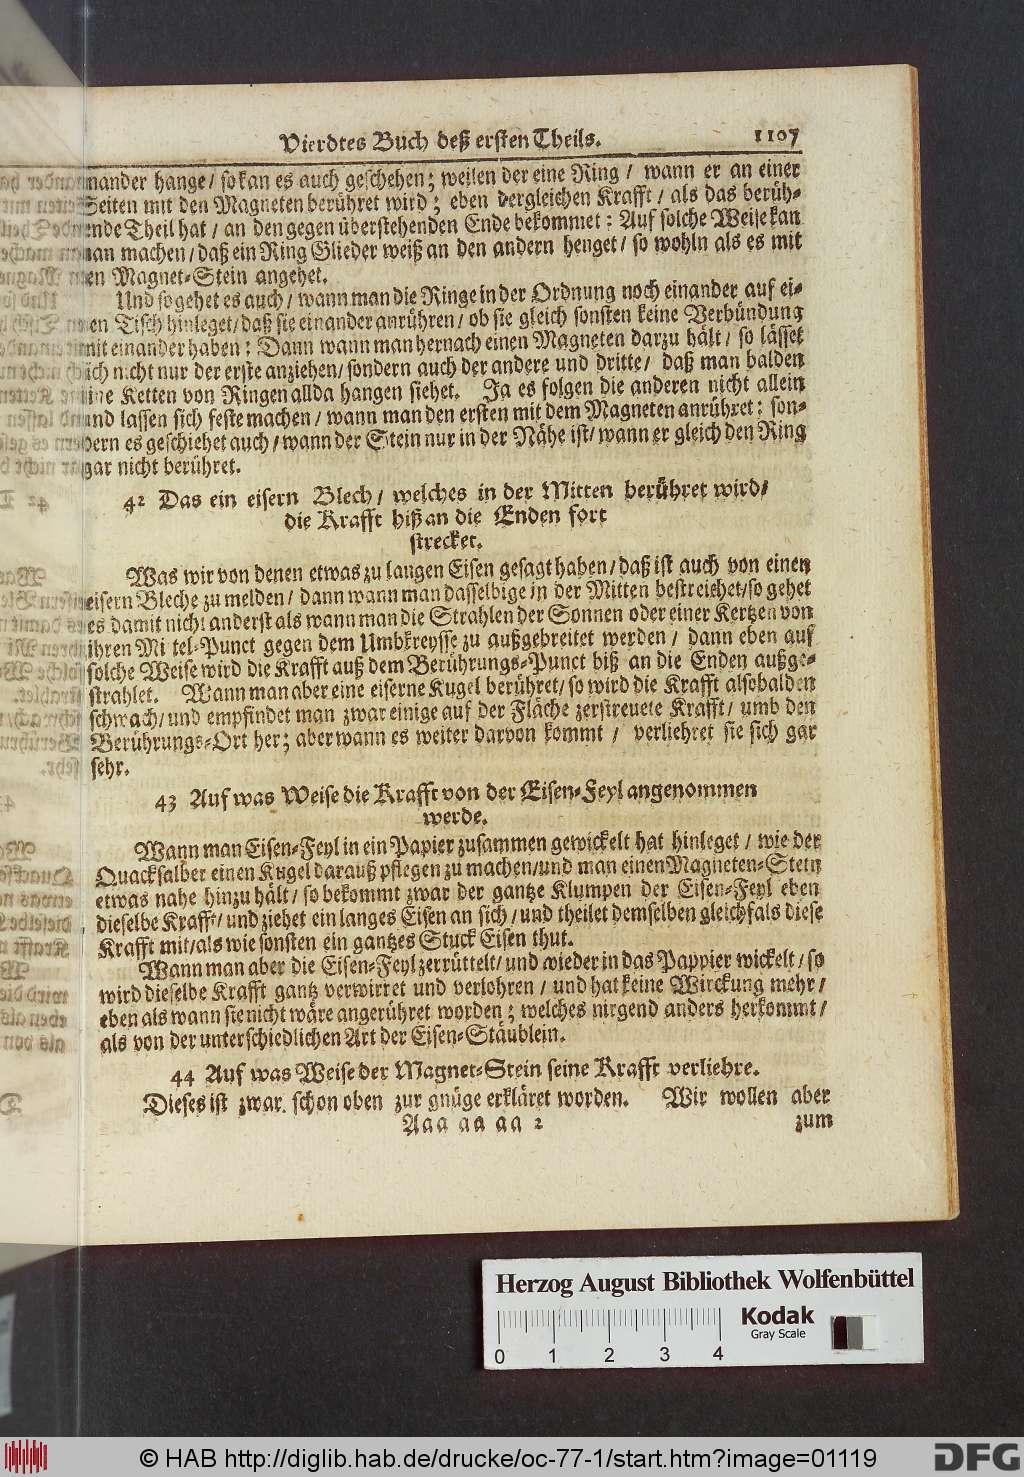 Vierdtes Buch deß ersten Theils. 1107
nander hange / so kan es auch geschehen; weilen der eine Ring / wann er an einer
Seiten mit den Magneten berühret wird; eben dergleichen Krafft / als das berüh-
ende Theil hat / an den gegen überstehenden Ende bekommet: Auf solche Weise kan
man machen / daß ein Ring Glieder weiß an den andern henget / so wohln als es mit
en Magnet-Stein angehet.
Und so gehet es auch / wann man die Ringe in der Ordnung noch einander auf ei-
en Tisch hinleget / daß sie einander anrühren / ob sie gleich sonsten keine Verbündung
mit einander haben: Dann wann man hernach einen Magneten darzu hält / so lässet
sich nicht nur der erste anziehen / sondern auch der andere und dritte / daß man balden
ine Ketten von Ringen allda hangen siehet. Ja es folgen die anderen nicht allein
und lassen sich feste machen / wann man den ersten mit dem Magneten anrühret: son-
dern es geschiehet auch / wann der Stein nur in der Nähe ist / wann er gleich den Ring
gar nicht berühret.
42 Das ein eisern Blech / welches in der Mitten berühret wird /
die Krafft biß an die Enden fort
strecket.
Was wir von denen etwas zu langen Eisen gesagt haben / daß ist auch von einen
eisern Bleche zu melden / dann wann man dasselbige in der Mitten bestreichet / so gehet
es damit nicht anderst als wann man die Strahlen der Sonnen oder einer Kertzen von
ihren Mi tel-Punct gegen dem Umbkreysse zu außgebreitet werden / dann eben auf
solche Weise wird die Krafft auß dem Berührungs-Punct biß an die Enden außge-
strahlet. Wann man aber eine eiserne Kugel berühret / so wird die Krafft alsobalden
schwach / und empfindet man zwar einige auf der Fläche zerstreuete Krafft / umb den
Berührungs-Ort her; aber wann es weiter darvon kommt / verliehret sie sich gar
sehr.
43 Auf was Weise die Krafft von der Eisen-Feyl angenommen
werde.
Wann man Eisen-Feyl in ein Papier zusammen gewickelt hat hinleget / wie der
Quacksalber einen Kugel darauß pflegen zu machen / und man einen Magneten-Stein
etwas nahe hinzu hält / so bekommt zwar der gantze Klumpen der Eisen-Feyl eben
dieselbe Krafft / und ziehet ein langes Eisen an sich / und theilet demselben gleichfals diese
Krafft mit / als wie sonsten ein gantzes Stuck Eisen thut.
Wann man aber die Eisen-Feyl zerrüttelt / und wieder in das Pappier wickelt / so
wird dieselbe Krafft gantz verwirret und verlohren / und hat keine Wirckung mehr /
eben als wann sie nicht wäre angerühret worden; welches nirgend anders herkommt /
als von der unterschiedlichen Art der Eisen-Stäublein.
44 Auf was Weise der Magnet-Stein seine Krafft verliehre.
Dieses ist zwar schon oben zur gnüge erkläret worden. Wir wollen aber
Aaa aa aa 2 zum
Herzog August Bibliothek Wolfenbüttel
Kodak
Gray Scale
0 1 2 3 4
© HAB http://diglib.hab.de/drucke/oc-77-1/start.htm?image=01119
DFG